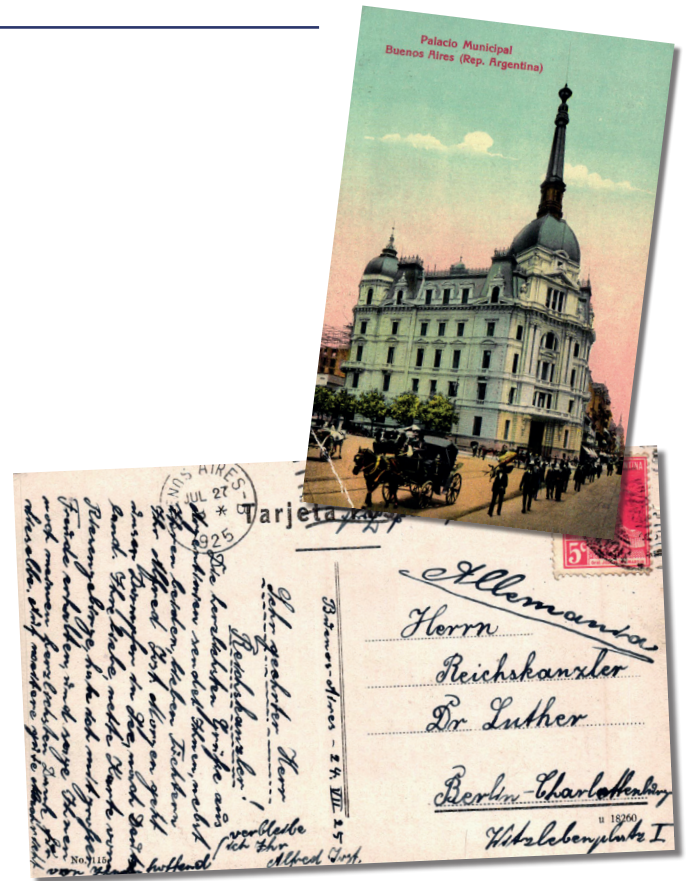 Palacio Municipal
Buenos Aires (Rep. Argentina)
NOS AIRES
JUL 27
1925
Tarjeta
5c
Allemania
Herrn
Reichskanzler
Dr Luther
Berlin-Charlottenburg
Witzlebenplatz I
u 18260
Buenos-Aires - 24. VII. 25
Sehr geehrter Herr
Reichskanzler!
Die herzlichsten Grüße aus
sendet Ihnen, nebst
Ihren beiden lieben Töchtern
Ihr Alfred Jost. Morgen geht
unser Dampfer in See, nach
Land. Ihre nette Karte von
habe ich mit großer
Freude erhalten, und sage Ihnen
noch meinen herzlichsten Dank für
dieselbe. Auf weitere gute
von hoffend
verbleibe
ich Ihr
Alfred Jost.
No. 115